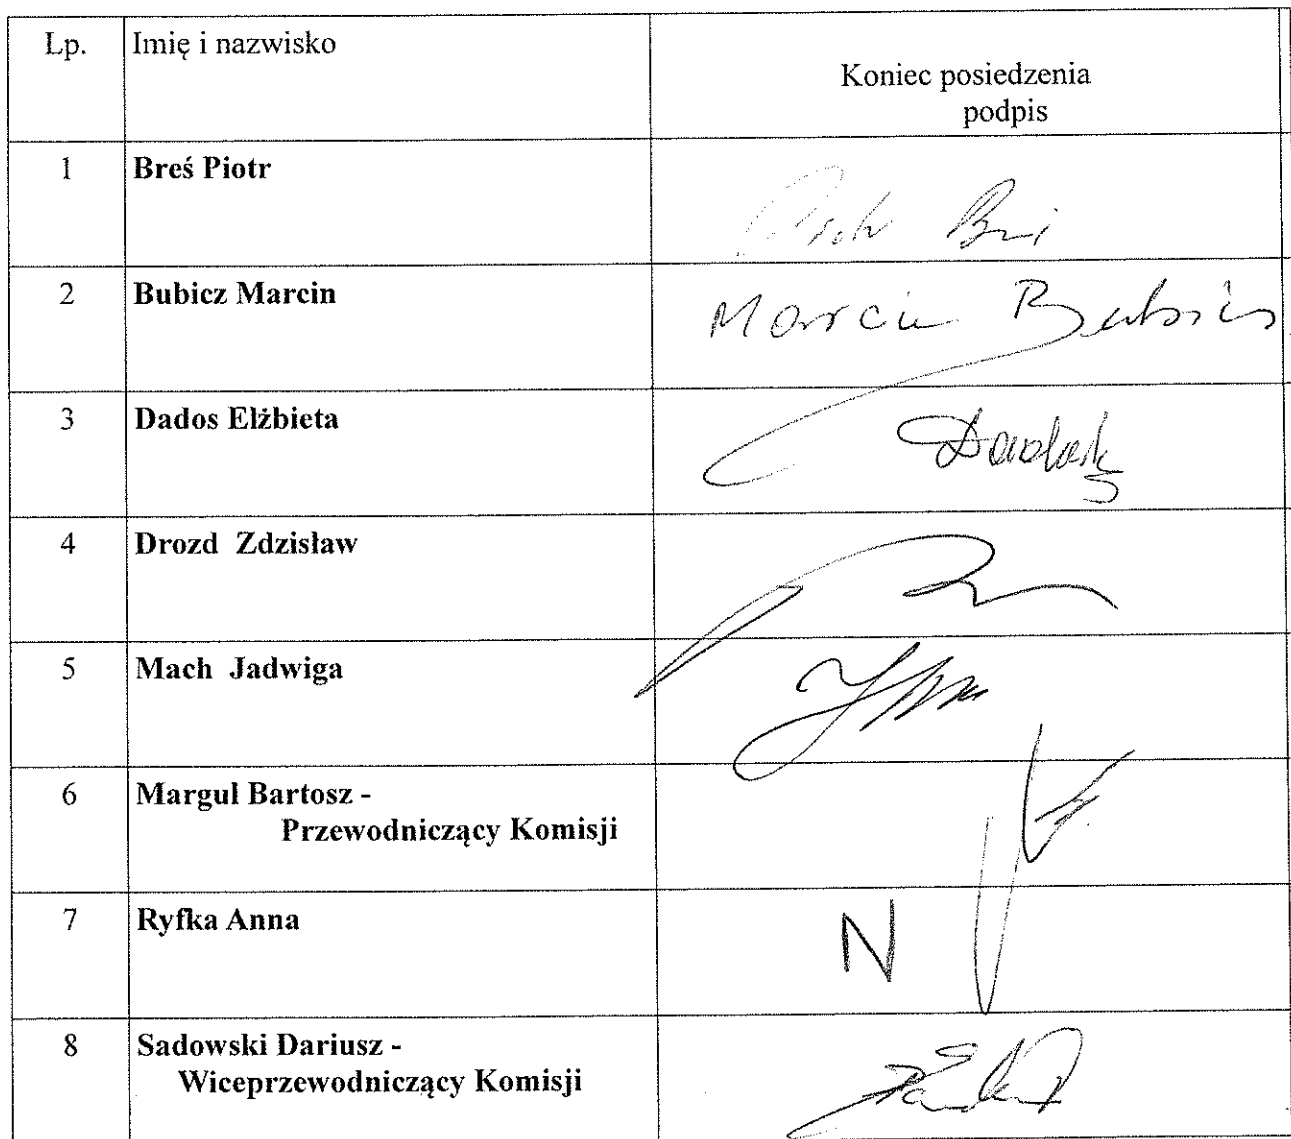 Lp.
Imię i nazwisko
Koniec posiedzenia
podpis
1
Breś Piotr
2
Bubicz Marcin
Marcin Bubicz
3
Dados Elżbieta
4
Drozd Zdzisław
5
Mach Jadwiga
6
Margul Bartosz -
Przewodniczący Komisji
7
Ryfka Anna
N
8
Sadowski Dariusz -
Wiceprzewodniczący Komisji